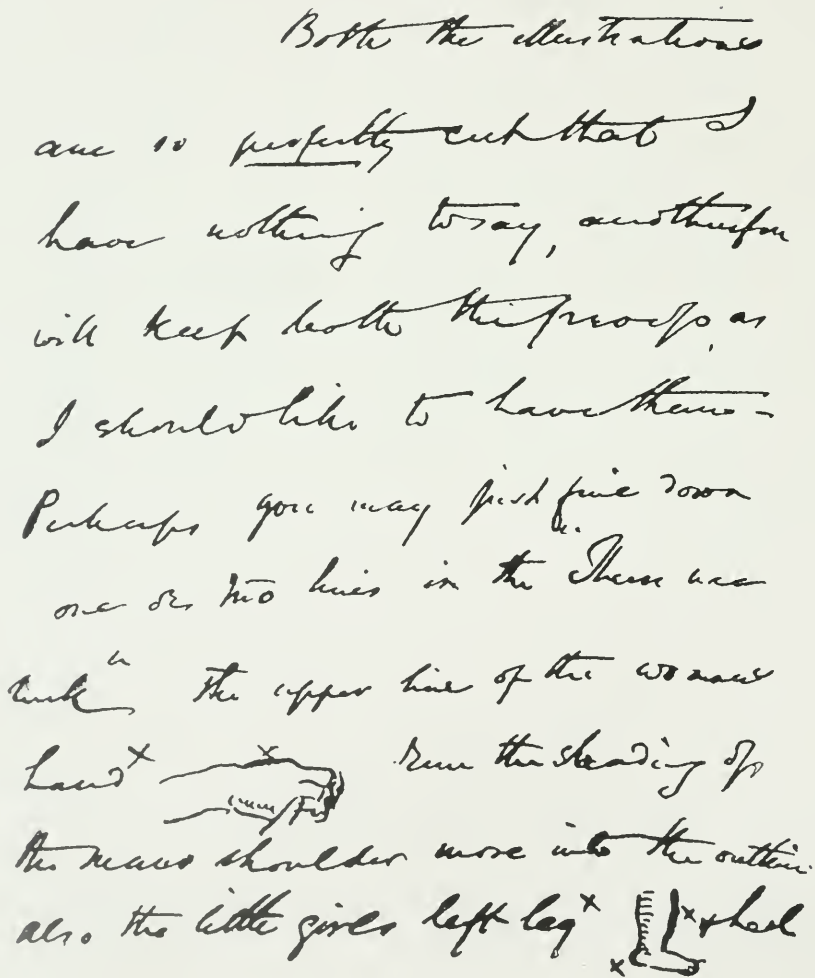 Both the illustrations
are so perfectly cut that I
have nothing to say, and therefore
will keep both the proofs, as
I should like to have them –
Perhaps you may just fine down
one or two lines in the "Theres nae
luck" The upper line of the womans
hand x x Run the shading of
the mans shoulder more into the outline
also the little girls left leg x x x heel
x